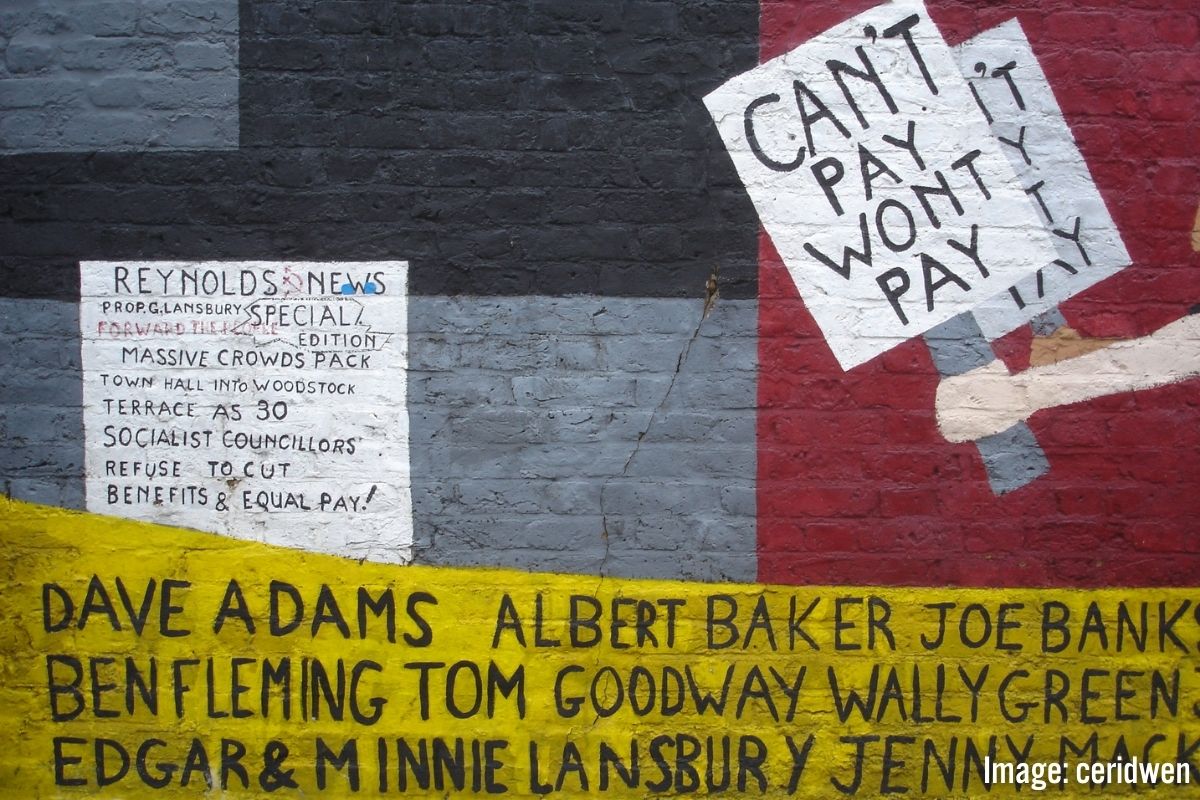 REYNOLDS NEWS
PROP. G. LANSBURY SPECIAL
FORWARD THE PEOPLE EDITION
MASSIVE CROWDS PACK
TOWN HALL INTO WOODSTOCK
TERRACE AS 30
SOCIALIST COUNCILLORS
REFUSE TO CUT
BENEFITS & EQUAL PAY!
CAN'T
PAY
WONT
PAY
DAVE ADAMS ALBERT BAKER JOE BANKS
BEN FLEMING TOM GOODWAY WALLY GREEN
EDGAR & MINNIE LANSBURY JENNY MACK
Image: ceridwen